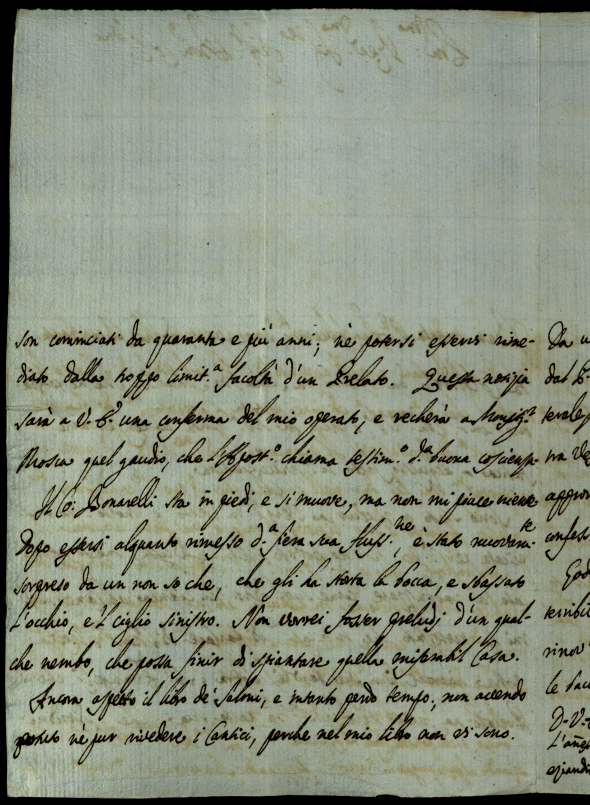 son cominciati da quaranta e più anni; nè potersi essersi rime-
diato dalla troppo limit.ª facoltà d'un Prelato. Questa notizia
sarà a V. E. una conferma del mio operato, e recherà a Monsig.r
Mosca quel gaudio, che l'Apost.º chiama testim.º d.ª buona coscienza.
Il Co: Bonarelli sta in piedi, e si muove, ma non mi piace niente.
Dopo essersi alquanto rimesso d.ª fiera sua fluss.ne, è stato nuovam.te
sorpreso da un non so che, che gli ha storta la bocca, e sbassato
l'occhio, e 'l ciglio sinistro. Non vorrei fosser preludj d'un qual-
che nembo, che possa finir di spiantare quella miserabil Casa.
Ancora aspetto il libro de' Salmi, e intanto perdo tempo, non avendo
potuto nè pur rivedere i Cantici, perche nel mio libro non vi sono.
Da
dal
approv
confess
God
terribil
rinov
le
D. V.
L'